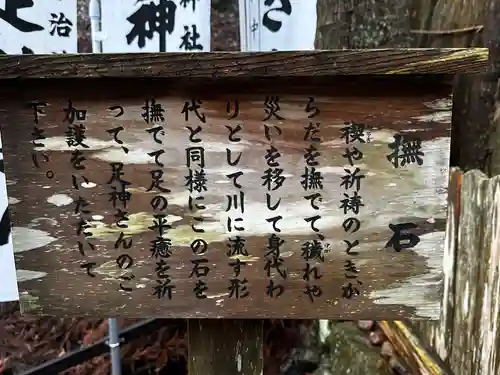 撫石
禊や祈祷のときが
らだを撫でて、穢れや
災いを移して身代わ
りとして川に流す形
代と同様にこの石を
撫でて足の平癒を祈
って、足神さんのご
加護をいただいて
下さい。